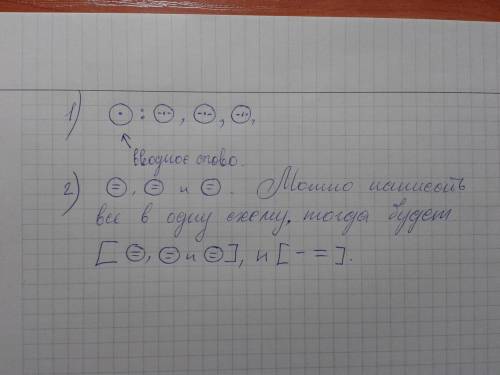 1) ⊙ : ⊝, ⊝, ⊝.
вводное слово.
2) ⊜, ⊜ и ⊜. Можно написать
все в одну схему, тогда будет
[⊜, ⊜ и ⊜], и [- =].